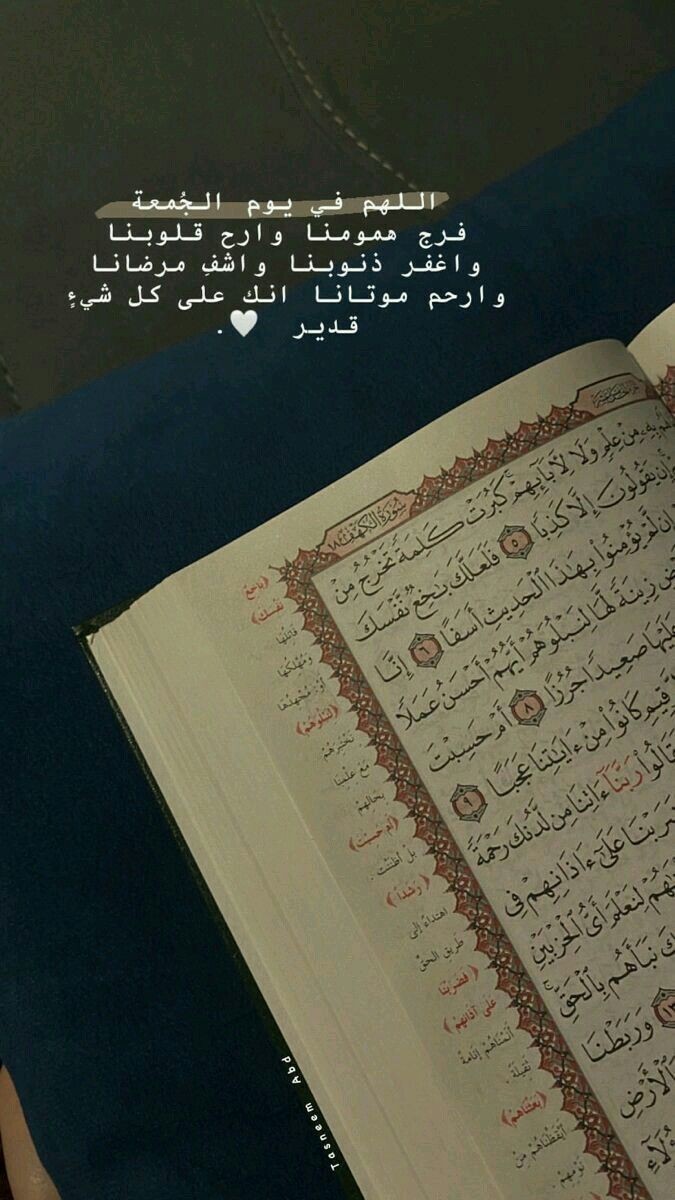 اللهم في يوم الجُمعة
فرج همومنا وارح قلوبنا
واغفر ذنوبنا واشفِ مرضانا
وارحم موتانا انك على كل شيءٍ
قدير 🤍.
سُورَةُ الكَهْفِ ١٨
مِنْ عِلْمٍ وَلَا لِآبَائِهِمْ كَبُرَتْ كَلِمَةً تَخْرُجُ مِنْ
إِن يَقُولُونَ إِلَّا كَذِبًا ٥ فَلَعَلَّكَ بَاخِعٌ نَّفْسَكَ
إِن لَّمْ يُؤْمِنُوا بِهَٰذَا الْحَدِيثِ أَسَفًا ٦ إِنَّا
زِينَةً لَّهَا لِنَبْلُوَهُمْ أَيُّهُمْ أَحْسَنُ عَمَلًا
عَلَيْهَا صَعِيدًا جُرُزًا ٨ أَمْ حَسِبْتَ
كَانُوا مِنْ ءَايَاتِنَا عَجَبًا ٩
رَبَّنَا ءَاتِنَا مِن لَّدُنكَ رَحْمَةً
عَلَىٰ ءَاذَانِهِمْ فِي
لِنَعْلَمَ أَيُّ الْحِزْبَيْنِ
نَبَأَهُم بِالْحَقِّ
١٣ وَرَبَطْنَا
﴿بَاخِعٌ
نَفْسَكَ﴾
قَاتِلُهَا
وَمُهْلِكُهَا
أَوْ مُجْهِدُهَا
﴿لِنَبْلُوَهُمْ﴾
نَخْتَبِرَهُمْ
مَعَ عِلْمِنَا
بِحَالِهِمْ
﴿أَمْ حَسِبْتَ﴾
بَلْ أَظَنَنْتَ
﴿رَشَدًا﴾
اهْتِدَاءً إِلَى
طَرِيقِ الحَقِّ
﴿فَضَرَبْنَا
عَلَى آذَانِهِمْ﴾
أَنَمْنَاهُمْ إِنَامَةً
ثَقِيلَةً
﴿بَعَثْنَاهُمْ﴾
أَيْقَظْنَاهُمْ مِنْ
نَوْمِهِمْ
Tasneem Abd